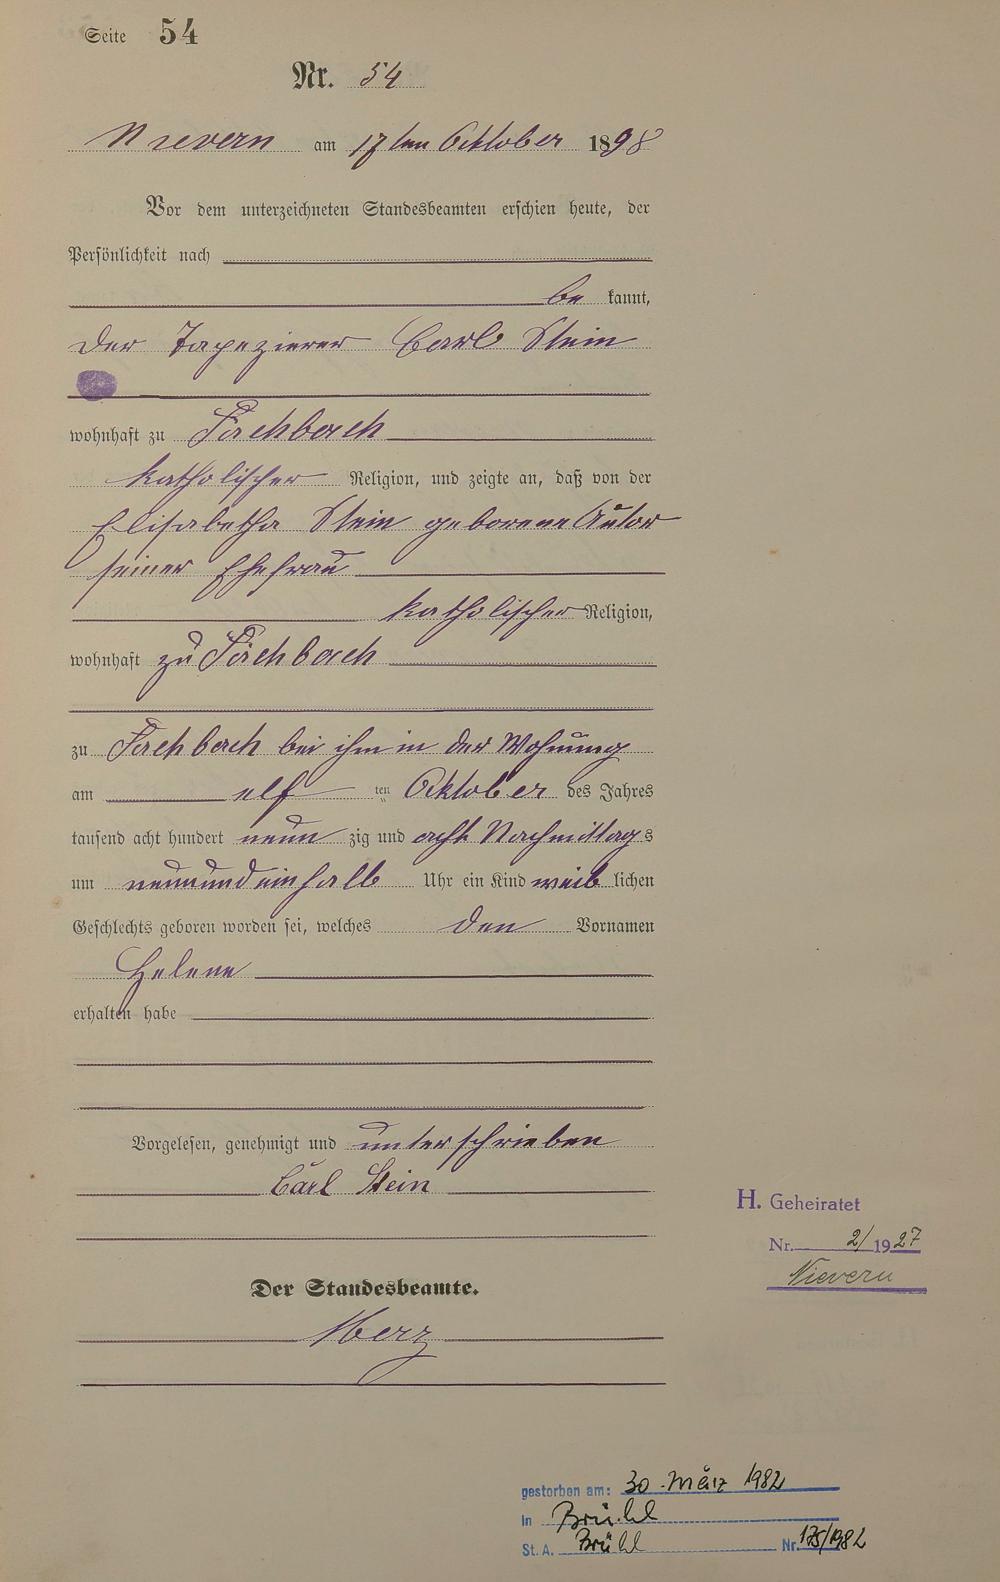 Seite 54
Nr. 54
Nievern am 17ten Oktober 1898
Vor dem unterzeichneten Standesbeamten erschien heute, der
Persönlichkeit nach
be kannt,
der Tapezierer Carl Stein
wohnhaft zu Fachbach
katholischer Religion, und zeigte an, daß von der
Elisabetha Stein geborene
seiner Ehefrau
katholischer Religion,
wohnhaft zu Fachbach
zu Fachbach bei ihm in der Wohnung
am elf ten Oktober des Jahres
tausend acht hundert neun zig und acht Nachmittags
um neunundeinhalb Uhr ein Kind weib lichen
Geschlechts geboren worden sei, welches den Vornamen
Helene
erhalten habe
Vorgelesen, genehmigt und unterschrieben
Carl Stein
Der Standesbeamte.
Merz
H. Geheiratet
Nr. 2/1927
Nievern
gestorben am: 30. März 1982
in Brühl
St. A. Brühl Nr. 175/1982